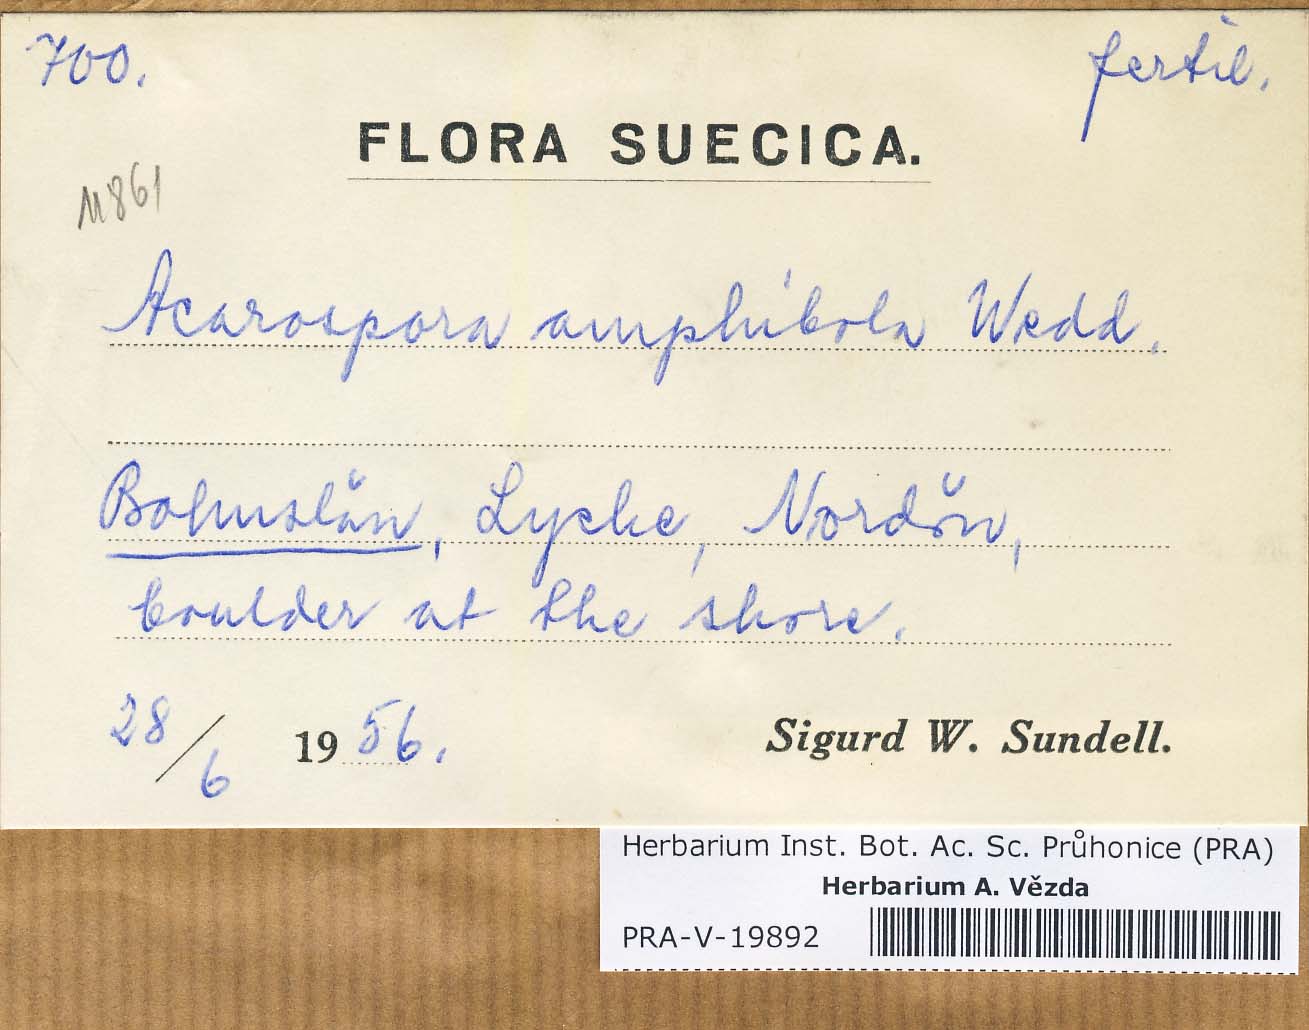 700.
fertil.
FLORA SUECICA.
M861
Acarospora amphibola Wedd.
Bohuslän, Lycke, Nordön,
boulder at the shore.
28/6 1956.
Sigurd W. Sundell.
Herbarium Inst. Bot. Ac. Sc. Průhonice (PRA)
Herbarium A. Vězda
PRA-V-19892